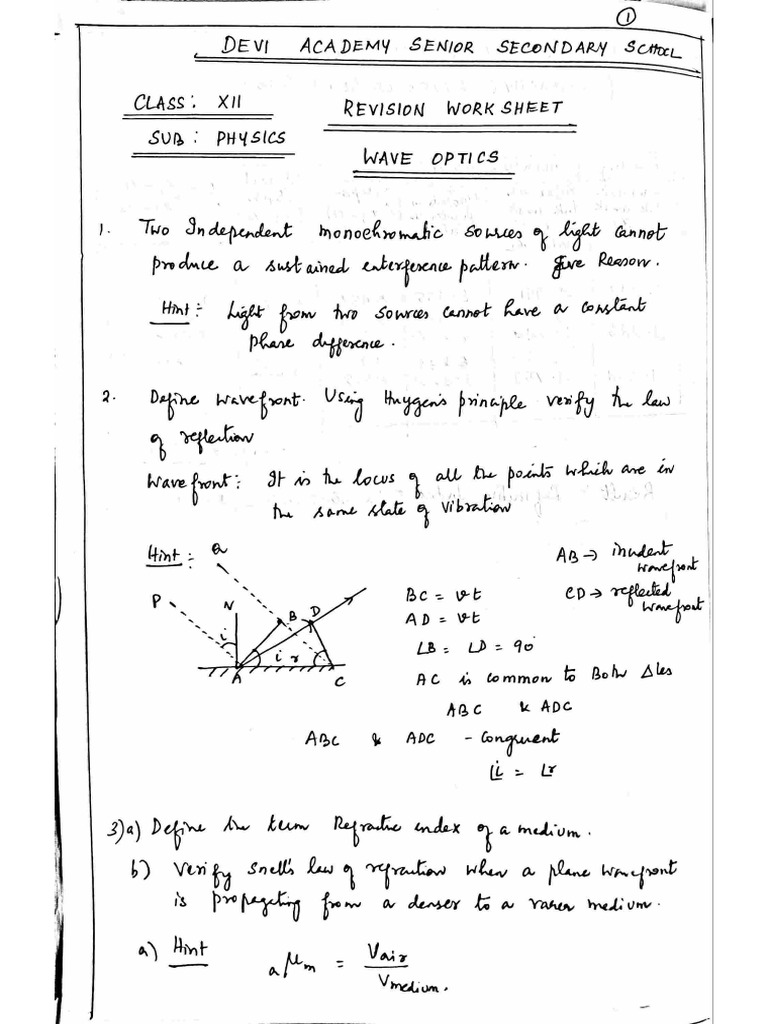 1
DEVI ACADEMY SENIOR SECONDARY SCHOOL
CLASS: XII
REVISION WORKSHEET
SUB: PHYSICS
WAVE OPTICS
1. Two Independent monochromatic sources of light cannot
produce a sustained enterference pattern. Give Reason.
Hint:- Light from two sources cannot have a constant
phase difference.
2. Define wavefront. Using Huygen's principle verify the law
of reflection
Wavefront: It is the locus of all the points which are in
the same state of vibration
Hint:-
Q
P
N
B
D
i
i
r
A
C
AB → incident
wavefront
BC = vt
CD → reflected
wavefront
AD = vt
∠B = ∠D = 90°
AC is common to Both Δles
ABC & ADC
ABC & ADC - congruent
∠i = ∠r
3)a) Define the term Refractive index of a medium.
b) Verify Snell's law of refraction when a plane wavefront
is propagating from a denser to a rarer medium.
a) Hint
aμm = Vair / Vmedium.